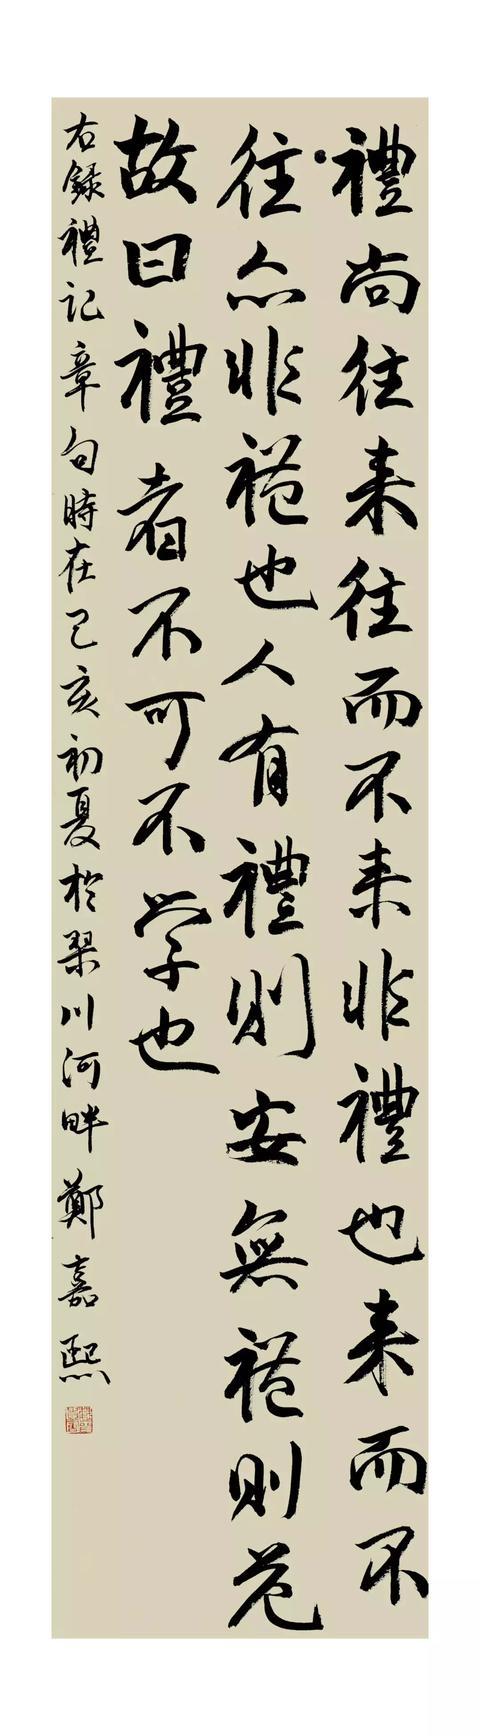 禮尚往来往而不来非禮也来而不
往亦非禮也人有禮則安無禮則危
故曰禮者不可不学也
右録禮記章句時在己亥初夏於琴川河畔鄭嘉熙